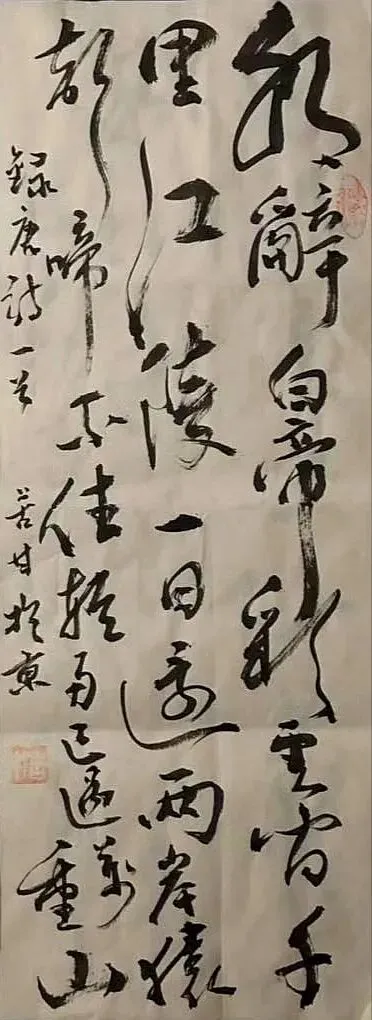 朝辭白帝彩雲間千
里江陵一日還兩岸猿
聲啼不住輕舟已過萬重山
錄唐詩一首 苦甘於京